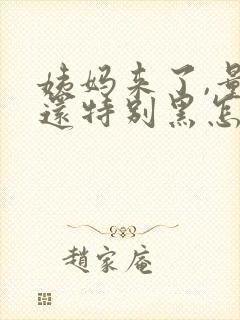 姨妈来了,量
還特别黑怎
趙家庵